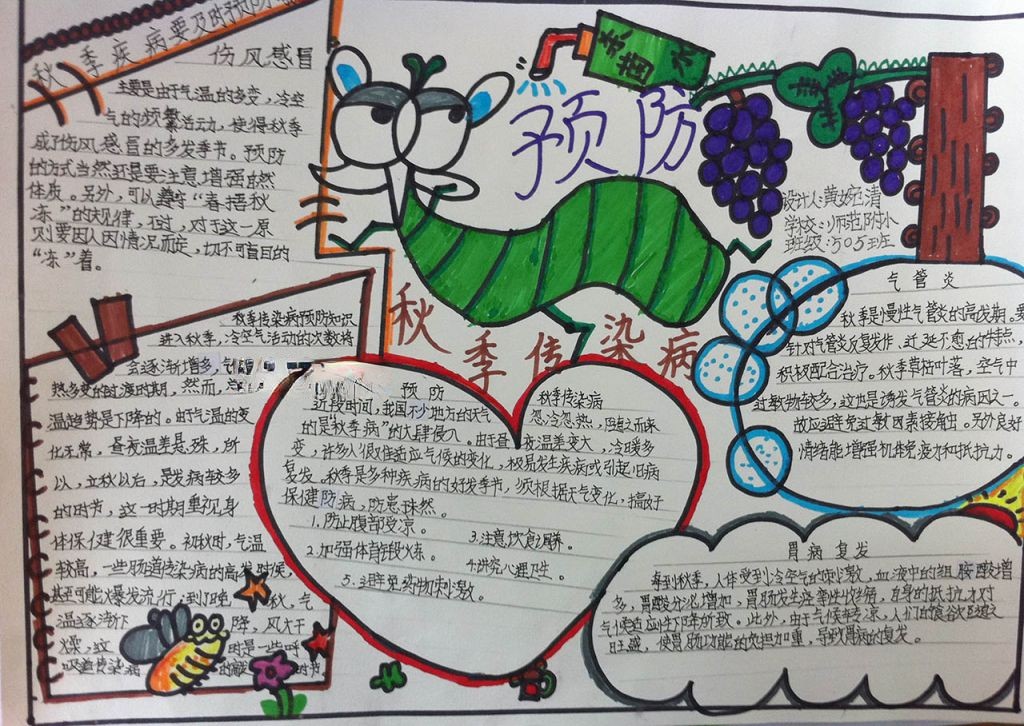 秋季疾病要及时预防
伤风感冒
主要是由于气温的多变，冷空
气的频繁活动，使得秋季
成了伤风感冒的多发季节。预防
的方式当然还是要注意增强自然
体质。另外，可以遵守“春捂秋
冻”的大规律，不过，对于这一原
则要因人因情况而定，切不可盲目的
“冻”着。
杀菌水
预防
设计人：黄婉清
学校：师范附小
班级：505班
秋季传染病
秋季传染病预防知识
进入秋季，冷空气活动的次数将
会逐渐增多，气
热多变的过渡时期，然而，总
温趋势是下降的。由于气温的变
化无常，昼夜温差悬殊，所
以，立秋以后，是发病较多
的时节，这一时期重视身
体保健很重要。初秋时，气温
较高，一些肠道传染病的高发时候，
甚至可能爆发流行，到了晚秋，气
温逐渐下降，风大干
燥，这时是一些呼
吸道传染病的高发时节
预防 秋季传染病
近段时间，我国不少地方的天气忽冷忽热，随之而来
的是“秋季病”的大肆侵入。由于昼夜温差变大，冷暖多
变，许多人很难适应气候的变化，极易发生疾病或引起旧病
复发。秋季是多种疾病的好发季节，须根据天气变化，搞好
保健防病，防患未然。
1.防止腹部受凉。 3.注意饮食调养。
2.加强体育锻炼。 4.讲究心理卫生。
5.避免药物刺激。
气管炎
秋季是慢性气管炎的高发期，要
针对气管炎反复发作，迁延不愈的特点，
积极配合治疗。秋季草枯叶落，空气中
过敏物较多，这也是诱发气管炎的病因之一。
故应避免过敏因素接触出。另外良好
情绪能增强机体免疫力和抵抗力。
胃病复发
每到秋季，人体受到冷空气的刺激，血液中的组胺酸增
多，胃酸分泌增加，胃肠发生痉挛性收缩，自身的抵抗力对
气候适应性下降所致。此外，由于气候转凉，人们的食欲随之
旺盛，使胃肠功能的负担加重，导致胃病的复发。